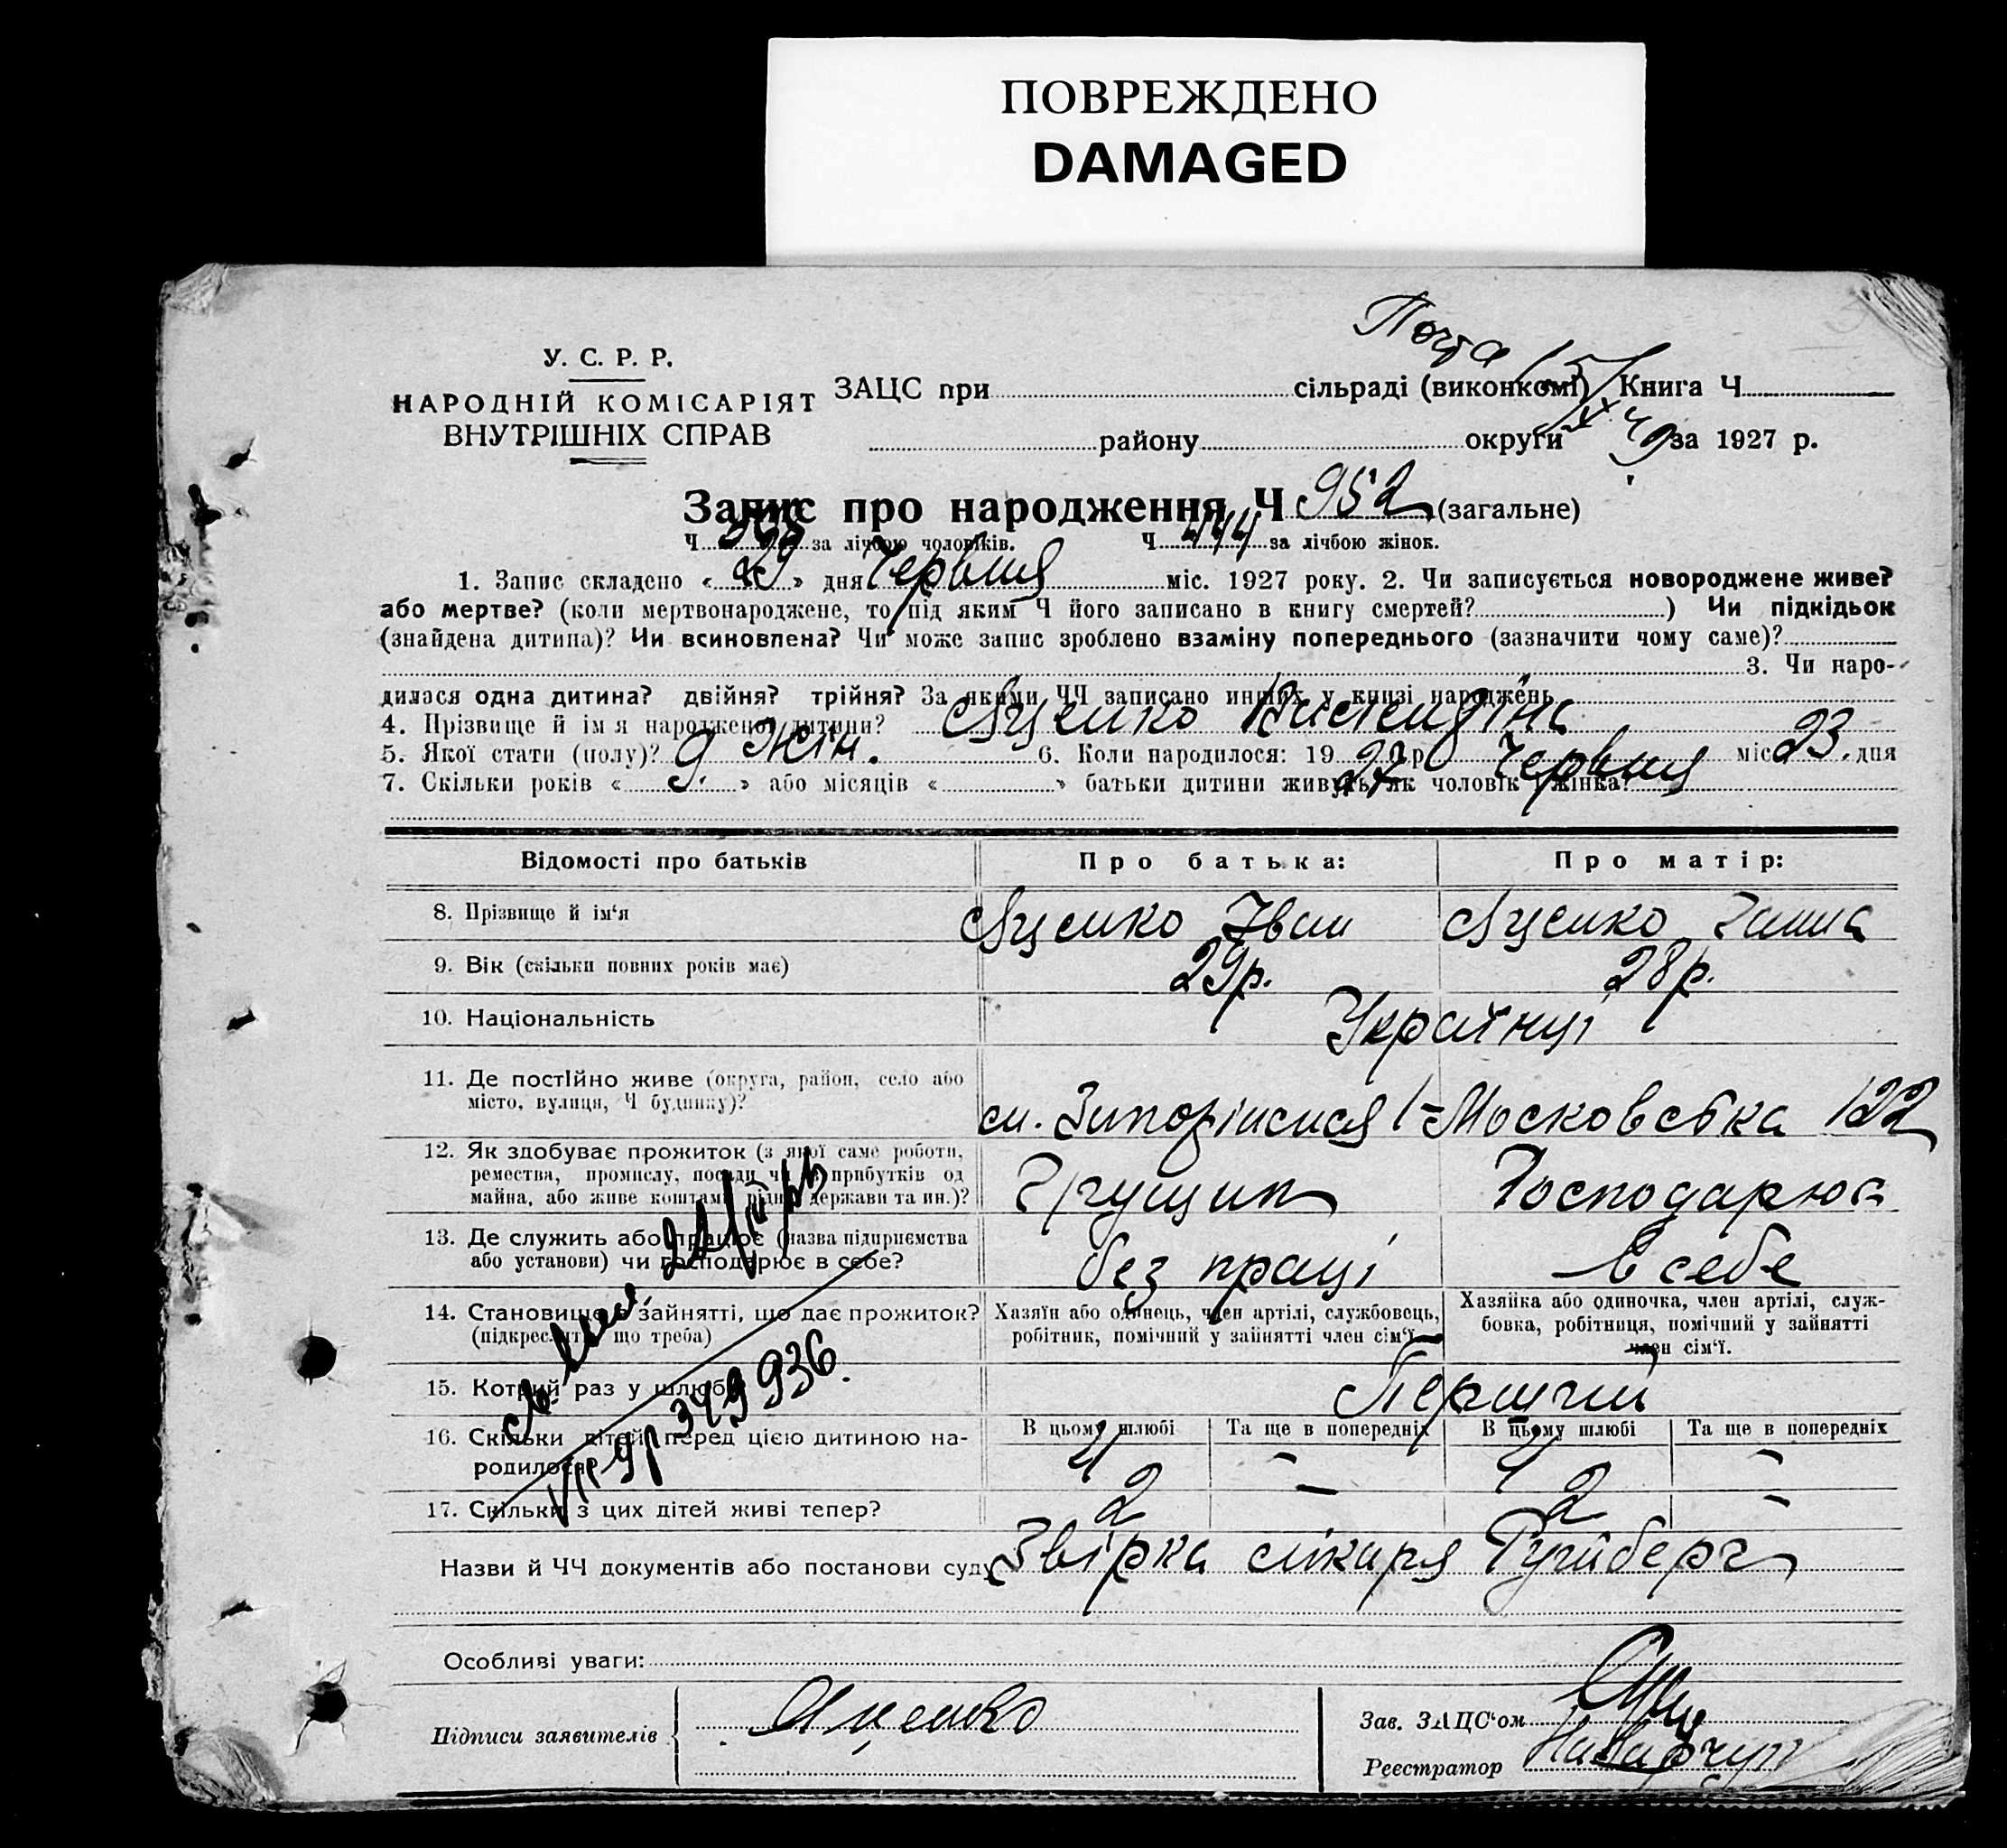 ПОВРЕЖДЕНО
DAMAGED
Почта 15/
У. С. Р. Р.
НАРОДНІЙ КОМІСАРІЯТ
ВНУТРІШНІХ СПРАВ
ЗАЦС при сільраді (виконкомі) Книга Ч
району округи за 1927 р.
Запис про народження Ч 952 (загальне)
Ч за лічбою чоловіків. Ч 444 за лічбою жінок.
1. Запис складено « 29 » дня Червня міс. 1927 року. 2. Чи записується новороджене живе?
або мертве? (коли мертвонароджене, то під яким Ч його записано в книгу смертей? ) Чи підкідьок
(знайдена дитина)? Чи всиновлена? Чи може запис зроблено взаміну попереднього (зазначити чому саме)?
3. Чи наро-
дилася одна дитина? двійня? трійня? За якими ЧЧ записано инших у книзі народжень
4. Прізвище й ім я народженої дитини? Яценко Валендіна
5. Якої стати (полу)? жін. 6. Коли народилося: 19 27 р Червня міс 23. дня
7. Скільки років « 9. » або місяців « » батьки дитини живуть як чоловік і жінка?
Відомості про батьків Про батька: Про матір:
8. Прізвище й ім‘я Яценко Іван Яценко Ганна
9. Вік (скільки повних років має) 29р. 28р.
10. Національність Українці
11. Де постійно живе (округа, район, село або
місто, вулиця, Ч будинку)?
м. Запоріжжя Московська 122
12. Як здобуває прожиток (з якої саме роботи,
ремества, промислу, посади чи з прибутків од
майна, або живе коштами рідні, держави та ин.)?
Грущик Господарює
13. Де служить або працює (назва підприємства
або установи) чи господарює в себе?
без праці в себе
14. Становище в зайнятті, що дає прожиток?
(підкреслити що треба)
Хазяїн або одинець, член артілі, службовець,
робітник, помічний у зайнятті член сім‘ї.
Хазяйка або одиночка, член артілі, служ-
бовка, робітниця, помічний у зайнятті
член сім‘ї.
15. Котрий раз у шлюбі Перший
349936.
16. Скільки дітей перед цією дитиною на-
родилося?
В цьому шлюбі Та ще в попередніх В цьому шлюбі Та ще в попередніх
4 - 4 -
17. Скільки з цих дітей живі тепер? 2 - 2 -
Назви й ЧЧ документів або постанови суду Звірка лікаря
Особливі уваги:
Підписи заявителів Яценко
Зав. ЗАЦС‘ом
Реєстратор